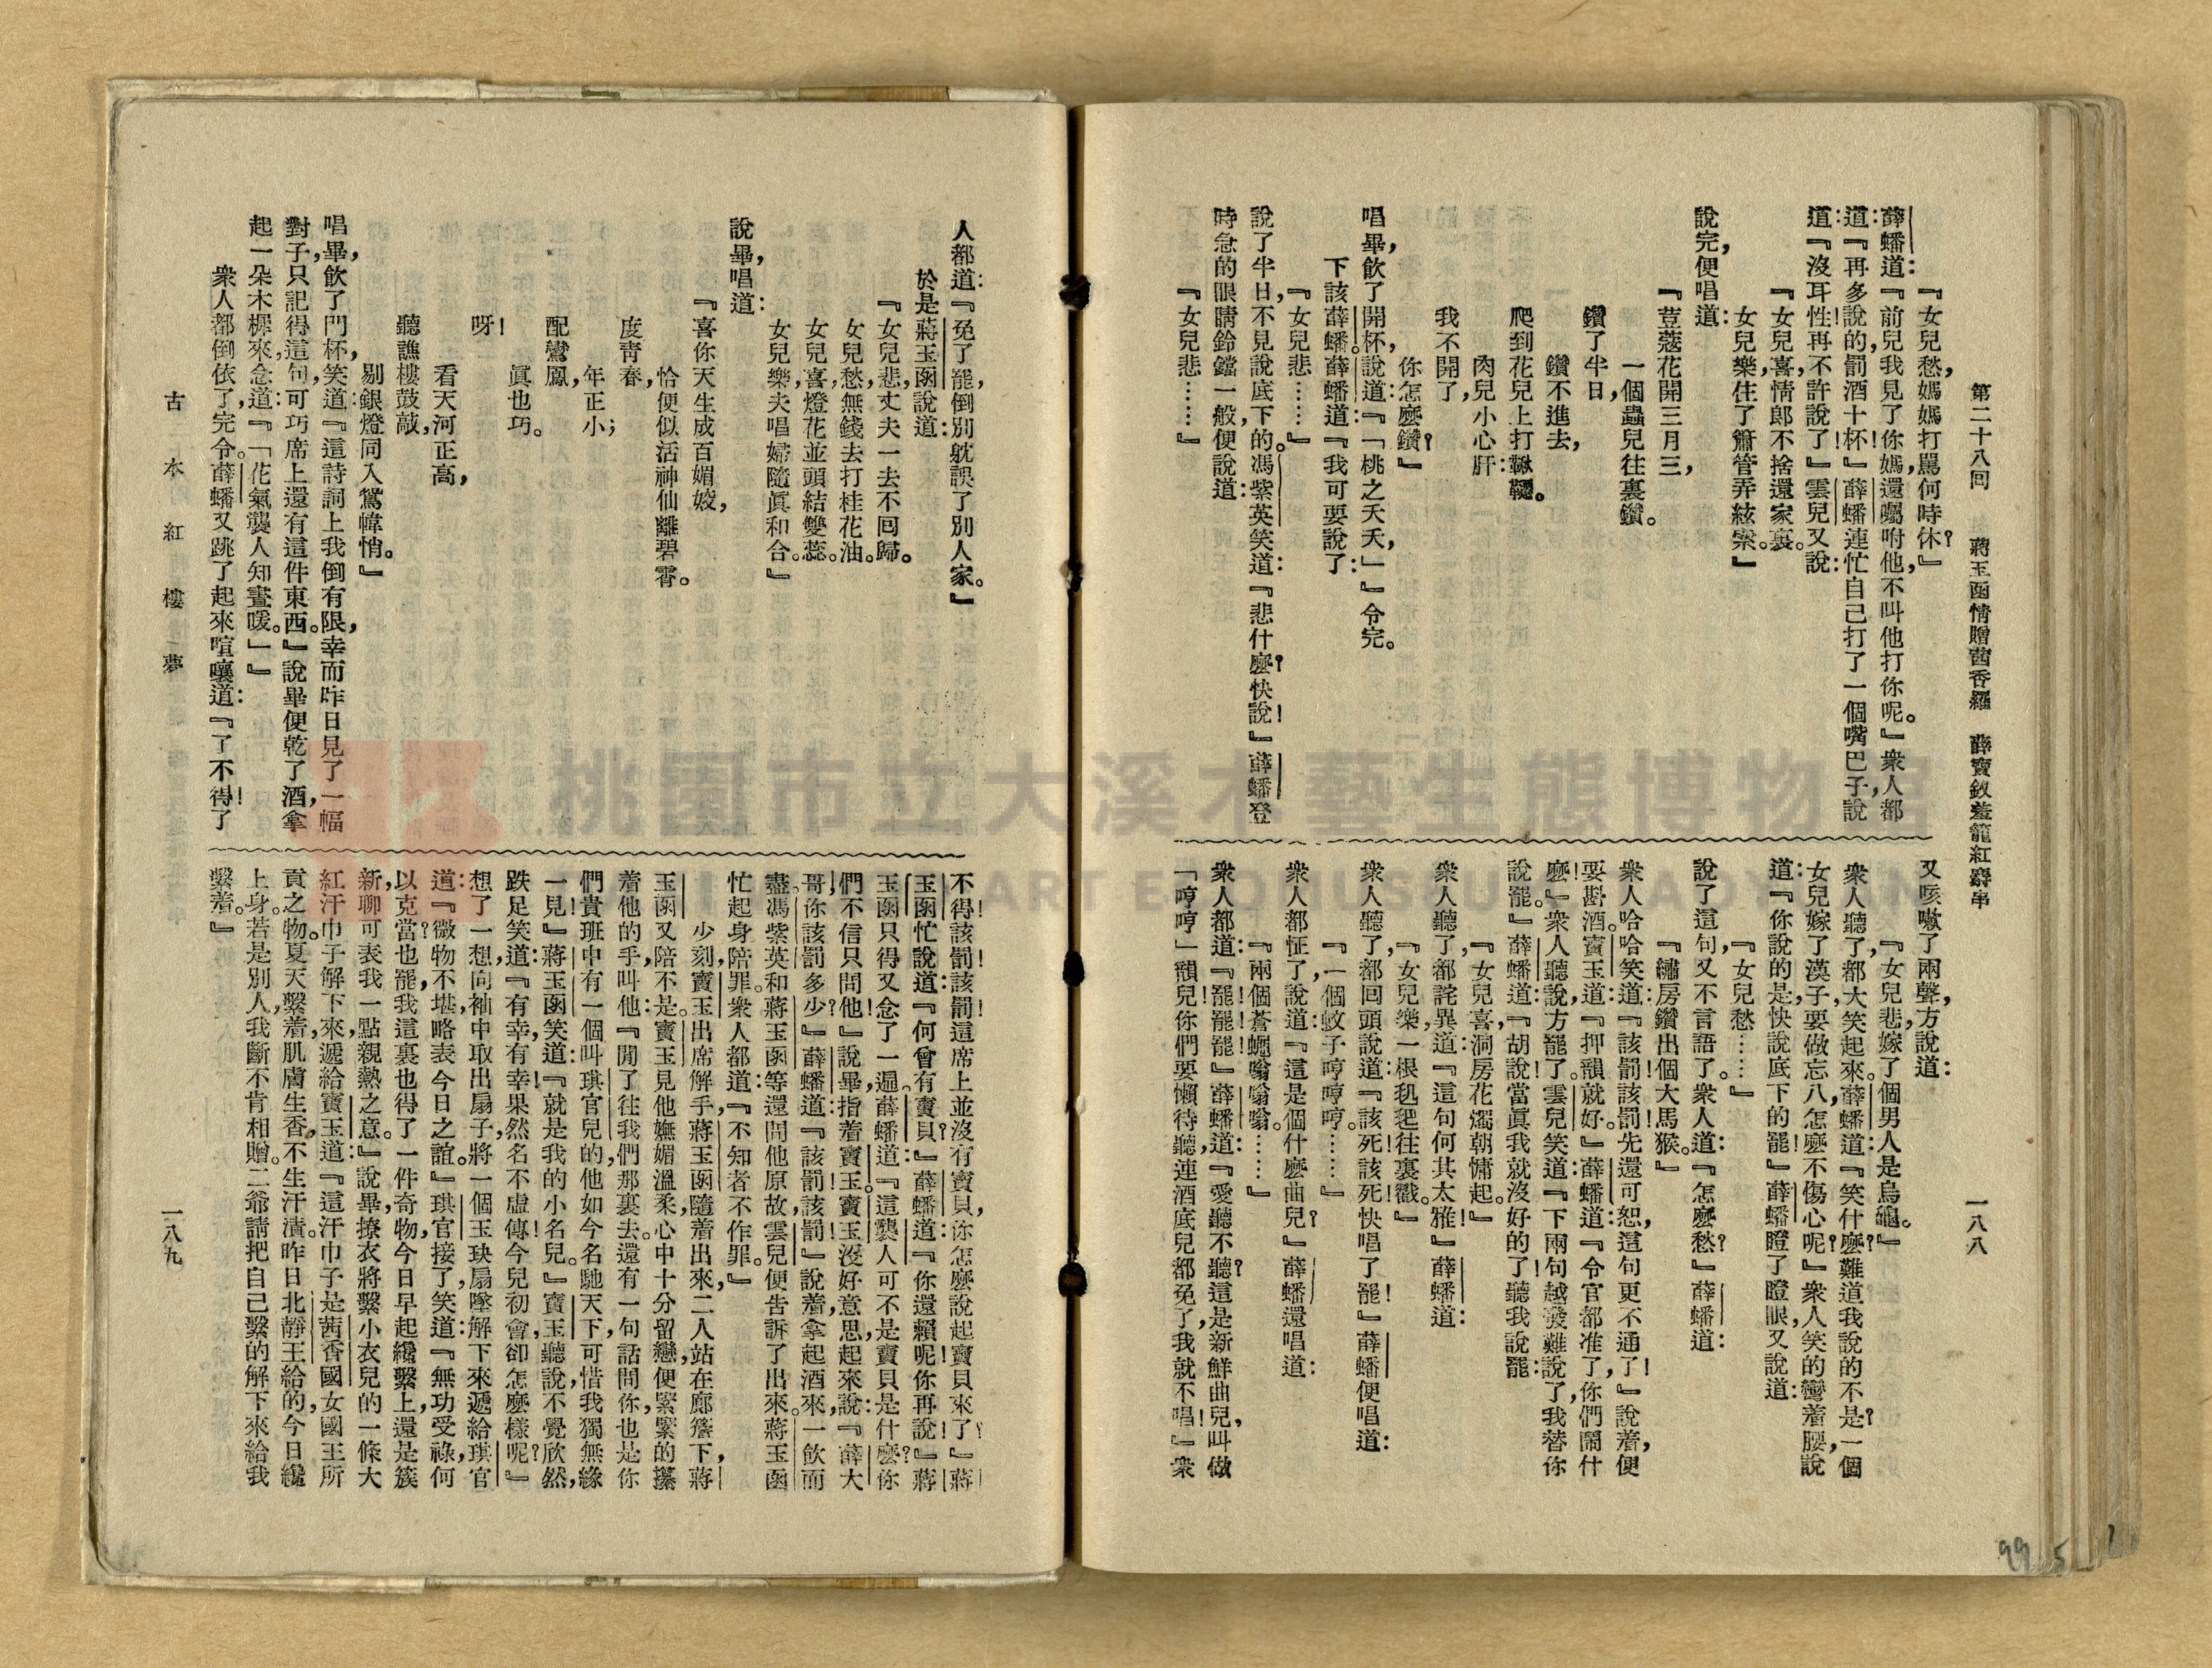 第二十八回 蔣玉函情贈茜香羅 薛寶釵羞籠紅麝串 一八八
『女兒愁,媽媽打罵何時休?』
薛蟠道:『前兒我見了你媽,還囑咐他,不叫他打你呢。』衆人都
道:『再多說的,罰酒十杯!』薛蟠連忙自己打了一個嘴巴子,說
道:『沒耳性!再不許說了!』雲兒又說:
『女兒喜,情郎不捨還家裏。
女兒樂,住了簫管弄絃索。』
說完,便唱道:
『荳蔻花開三月三,
一個蟲兒往裏鑽。
鑽了半日,
鑽不進去,
爬到花兒上打鞦韆。
肉兒小心肝
我不開了,
你怎麼鑽?』
唱畢,飲了開杯,說道:『「桃之夭夭,」』令完。
下該薛蟠。薛蟠道:『我可要說了:
『女兒悲……』
說了半日,不見說底下的。馮紫英笑道:『悲什麼?快說!』薛蟠登
時急的眼睛鈴鐺一般,便說道:
『女兒悲……』
又咳嗽了兩聲,方說道:
『女兒悲,嫁了個男人是烏龜。』
衆人聽了,都大笑起來。薛蟠道:『笑什麼?難道我說的不是?一個
女兒嫁了漢子,要做忘八,怎麼不傷心呢?』衆人笑的彎着腰,說
道:『你說的是,快說底下的罷!』薛蟠瞪了瞪眼,又說道:
『女兒愁……』
說了這句,又不言語了。衆人道:『怎麼愁?』薛蟠道:
『繡房鑽出個大馬猴。』
衆人哈哈笑道:『該罰!該罰!先還可恕,這句更不通了!』說着,便
要斟酒。寶玉道:『押韻就好。』薛蟠道:『令官都准了,你們鬧什
麼!』衆人聽說,方罷了。雲兒笑道:『下兩句越發難說了,我替你
說罷。』薛蟠道:『胡說!當眞我就沒好的了!聽我說罷:
『女兒喜,洞房花燭朝慵起。』
衆人聽了,都詫異道:『這句何其太雅!』薛蟠道:
『女兒樂,一根𣬠𣬶往裏戳。』
衆人聽了,都回頭說道:『該死!該死!快唱了罷!』薛蟠便唱道:
『一個蚊子哼哼哼。……』
衆人都怔了,說道:『這是個什麼曲兒?』薛蟠還唱道:
『兩個蒼蠅嗡嗡嗡。……』
衆人都道:『罷!罷!罷!』薛蟠道:『愛聽不聽?這是新鮮曲兒,叫做
「哼哼」韻兒,你們要懶待聽,連酒底兒都免了,我就不唱!』衆
人都道:『免了罷,倒別躭誤了別人家。』
於是蔣玉函說道:
『女兒悲,丈夫一去不回歸。
女兒愁,無錢去打桂花油。
女兒喜,燈花並頭結雙蕊。
女兒樂,夫唱婦隨眞和合。』
說畢,唱道:
『喜你天生成百媚姣,
恰便似活神仙離碧霄。
度靑春,
年正小;
配鸞鳳,
眞也巧。
呀!
看天河正高,
聽譙樓鼓敲,
剔銀燈同入鴛幃悄。』
唱畢,飲了門杯,笑道:『這詩詞上我倒有限,幸而昨日見了一幅
對子,只記得這句,可巧席上還有這件東西。』說畢便乾了酒,拿
起一朵木樨來,念道:『「花氣襲人知晝暖。」』
衆人都倒依了,完令。薛蟠又跳了起來,喧嚷道:『了不得!了
不得!該罰!該罰!這席上並沒有寶貝,你怎麼說起寶貝來了?』蔣
玉函忙說道:『何曾有寶貝?』薛蟠道:『你還賴呢!你再說!』蔣
玉函只得又念了一遍。薛蟠道:『這襲人可不是寶貝是什麼?你
們不信,只問他!』說畢,指着寶玉。寶玉沒好意思,起來說:『薛大
哥,你該罰多少?』薛蟠道:『該罰!該罰!』說着,拿起酒來,一飲而
盡。馮紫英和蔣玉函等還問他原故,雲兒便告訴了出來。蔣玉函
忙起身陪罪。衆人都道:『不知者不作罪。』
少刻,寶玉出席解手,蔣玉函隨着出來,二人站在廊簷下,蔣
玉函又陪不是。寶玉見他嫵媚溫柔,心中十分留戀,便緊緊的攥
着他的手,叫他:『閒了往我們那裏去。還有一句話問你,也是你
們貴班中,有一個叫琪官兒的,他如今名馳天下,可惜我獨無緣
一見!』蔣玉函笑道:『就是我的小名兒。』寶玉聽說,不覺欣然,
跌足笑道:『有幸,有幸!果然名不虛傳!今兒初會,卻怎麼樣呢?』
想了一想,向袖中取出扇子,將一個玉玦扇墜解下來,遞給琪官
道:『微物不堪,略表今日之誼。』琪官接了,笑道:『無功受祿,何
以克當?也罷,我這裏也得了一件奇物,今日早起纔繫上,還是簇
新,聊可表我一點親熱之意。』說畢,撩衣將繫小衣兒的一條大
紅汗巾子解下來,遞給寶玉道:『這汗巾子是茜香國女國王所
貢之物。夏天繫着,肌膚生香,不生汗漬。昨日北靜王給的,今日纔
上身。若是別人,我斷不肯相贈。二爺請把自己繫的解下來給我
繫着。』
古本紅樓夢 一八九
桃園市立大溪木藝生態博物館
99 5 1